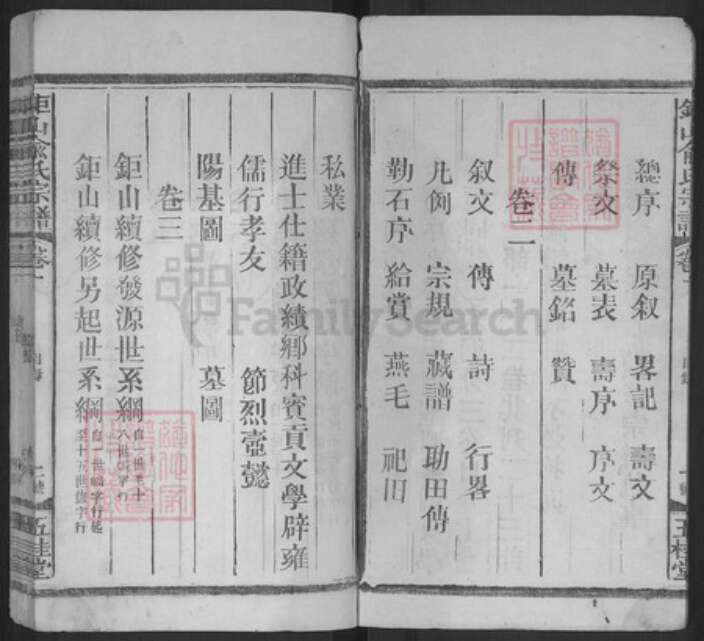 總序 原叙 畧記 壽文
祭文 墓表 壽序 序文
傳 墓銘 贊
卷二
叙文 傳 詩 行畧
凡例 宗規 藏譜 助田傳
勒石序 給賞 燕毛 祀旧
私業
進士仕籍政績鄉科賓貢文學辟雍
儒行孝友 節烈壼懿
陽基圖 墓圖
卷三
鉅山續修發源世系綱
鉅山續修另起世系綱
鉅山俞氏宗譜
卷一
五桂堂
FamilySearch